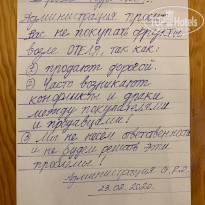 Администрация просит
Вас не покупать фрукты
возле ОТЕЛЯ, так как:
① продают дорогой.
② Часто возникают
конфликты и драки
между покупателями
и продавцами!
③ Мы не несём ответственность
и не будем решать эти
проблемы!
Администрация
23.02.2020.